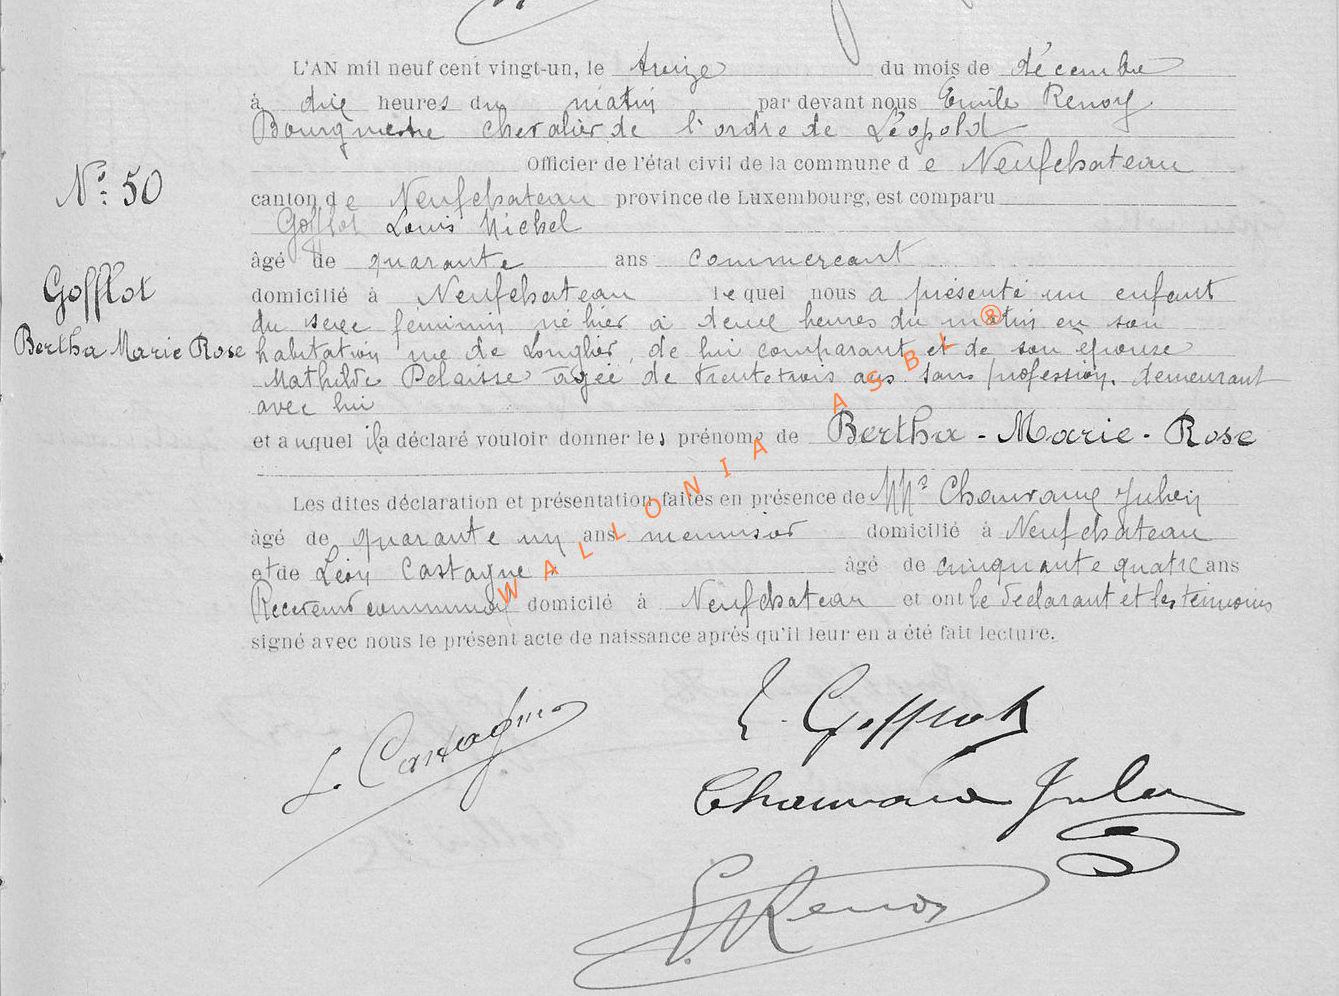 L'AN mil neuf cent vingt-un, le treize du mois de décembre
à dix heures du matin par devant nous Emile Renoy
Bourgmestre chevalier de l'ordre de Léopold
Officier de l'état civil de la commune de Neufchateau
N° 50
canton de Neufchateau province de Luxembourg, est comparu
Gofflot Louis Michel
âgé de quarante ans commercant
Gofflot
domicilié à Neufchateau lequel nous a présenté un enfant
du sexe féminin né hier à deux heures du matin en son
Bertha Marie Rose
habitation rue de Longlier, de lui comparant et de son epouse
Mathilde Pelaisse agée de trente trois ans sans profession, demeurant
avec lui
et auquel il a déclaré vouloir donner les prénoms de Bertha - Marie - Rose
Les dites déclaration et présentation faites en présence de MMs Julien
âgé de quarante un ans menuisier domicilié à Neufchateau
et de Léon Castagne âgé de cinquante quatre ans
Receveur communal domicilé à Neufchateau et ont le déclarant et les témoins
signé avec nous le présent acte de naissance après qu'il leur en a été fait lecture.
L. Castagne
L. Gofflot
Julien
E. Renoy
WALLONIA ASBL ®